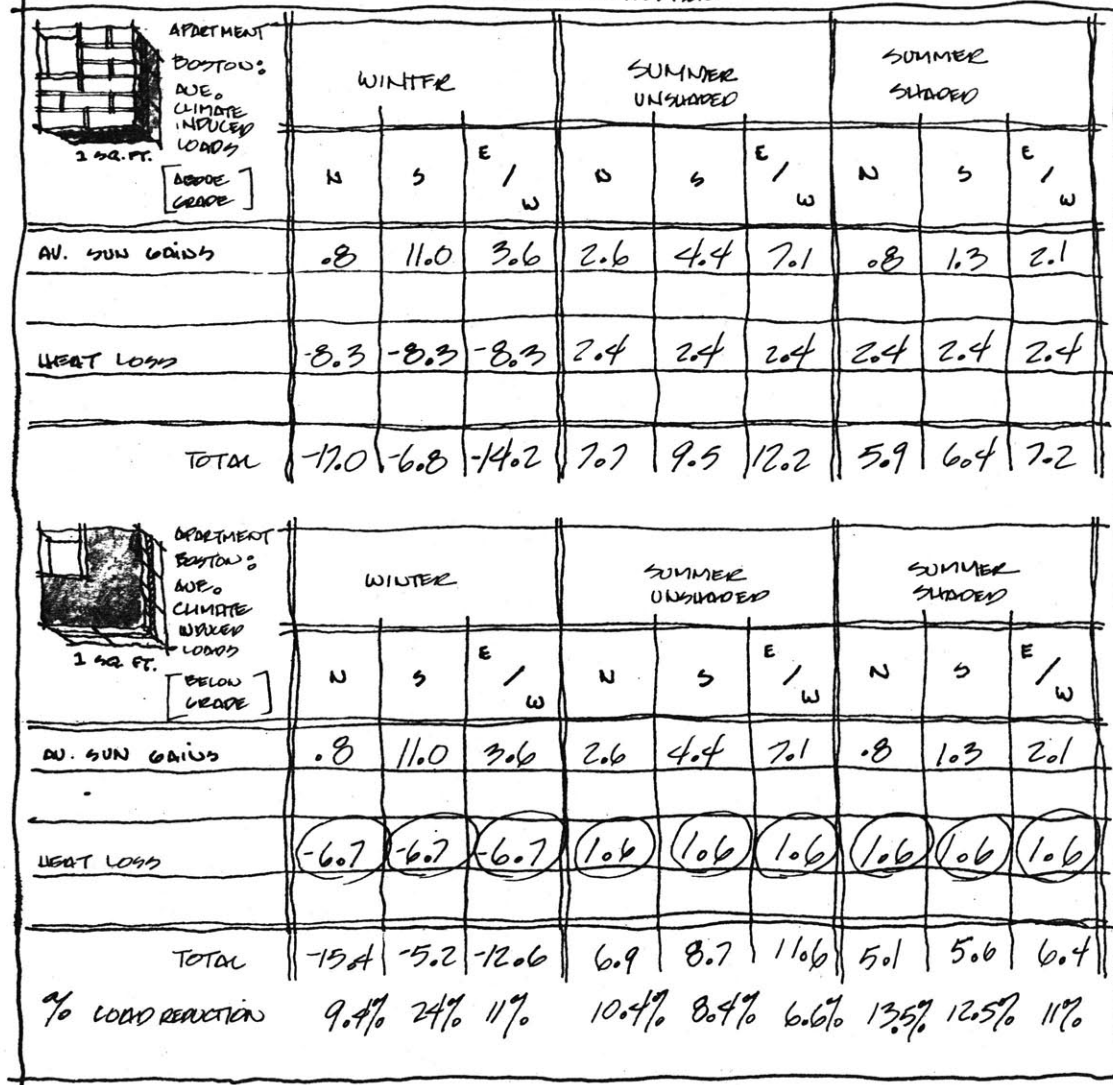 APARTMENT
BOSTON:
AVE.
CLIMATE
INDUCED
LOADS
1 SQ. FT.
[ABOVE GRADE]
WINTER SUMMER UNSHADED SUMMER SHADED
N S E/W N S E/W N S E/W
AV. SUN GAINS .8 11.0 3.6 2.6 4.4 7.1 .8 1.3 2.1
HEAT LOSS -8.3 -8.3 -8.3 2.4 2.4 2.4 2.4 2.4 2.4
TOTAL -17.0 -6.8 -14.2 7.7 9.5 12.2 5.9 6.4 7.2
APARTMENT
BOSTON:
AVE.
CLIMATE
INDUCED
LOADS
1 SQ. FT.
[BELOW GRADE]
WINTER SUMMER UNSHADED SUMMER SHADED
N S E/W N S E/W N S E/W
AV. SUN GAINS .8 11.0 3.6 2.6 4.4 7.1 .8 1.3 2.1
HEAT LOSS -6.7 -6.7 -6.7 1.6 1.6 1.6 1.6 1.6 1.6
TOTAL -15.4 -5.2 -12.6 6.9 8.7 11.6 5.1 5.6 6.4
% LOAD REDUCTION 9.4% 24% 11% 10.4% 8.4% 6.6% 13.5% 12.5% 11%